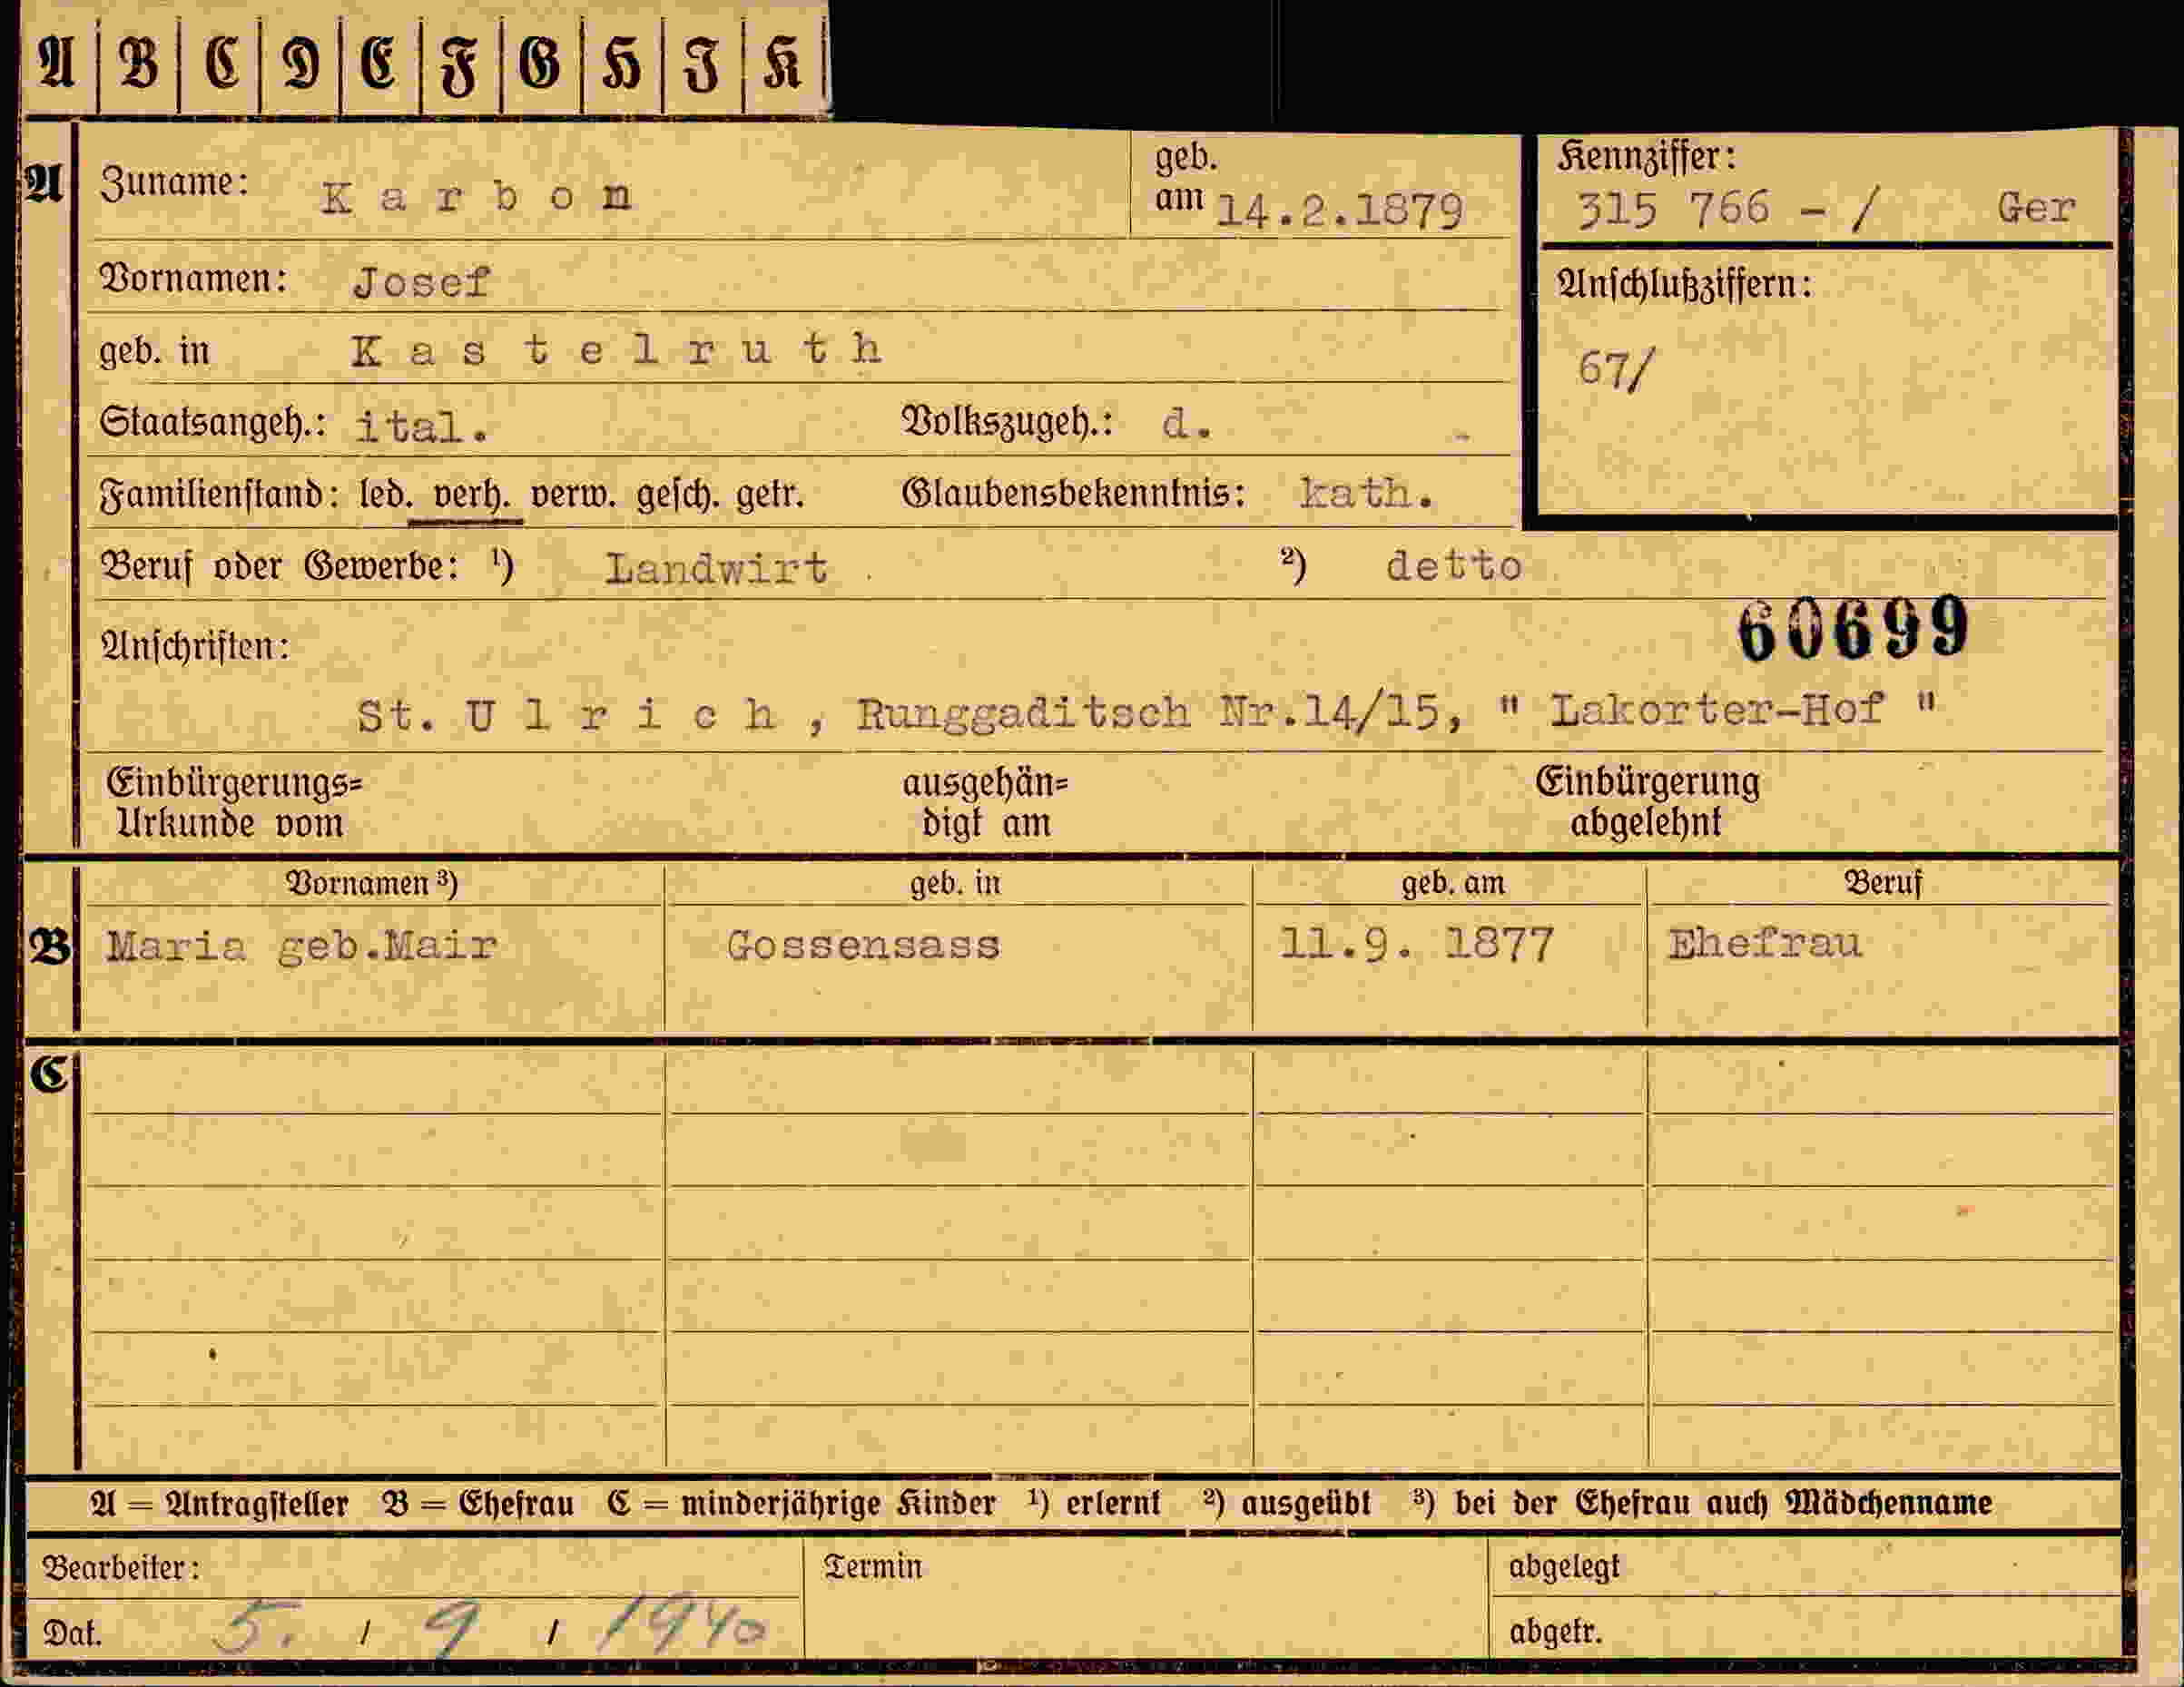 A B C D E F G H I K
A Zuname: Karbon geb. am 14.2.1879
Kennziffer: 315 766 - / Ger
Vornamen: Josef
Anschlußziffern: 67/
geb. in Kastelruth
Staatsangeh.: ital. Volkszugeh.: d.
Familienstand: led. verh. verw. gesch. getr. Glaubensbekenntnis: kath.
Beruf oder Gewerbe: ¹) Landwirt ²) detto
60699
Anschriften:
St. Ulrich, Runggaditsch Nr.14/15, " Lakorter-Hof "
Einbürgerungs= ausgehän= Einbürgerung
Urkunde vom digt am abgelehnt
Vornamen ³) geb. in geb. am Beruf
B Maria geb.Mair Gossensass 11.9. 1877 Ehefrau
C
A = Antragsteller B = Ehefrau C = minderjährige Kinder ¹) erlernt ²) ausgeübt ³) bei der Ehefrau auch Mädchenname
Bearbeiter: Termin abgelegt
Dat. 5. / 9 / 1940 abgetr.